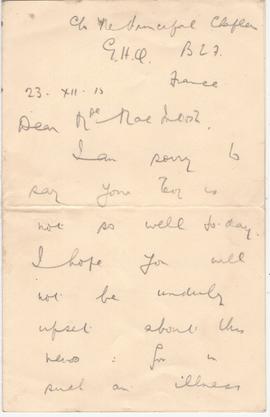 C/o The Principal Chaplain
G.H.Q. B.E.F.
France
23. XII. 15
Dear Mrs MacIntosh,
I am sorry to
say your boy is
not so well to-day.
I hope you will
not be unduly
upset about this
news: for in
such an illness